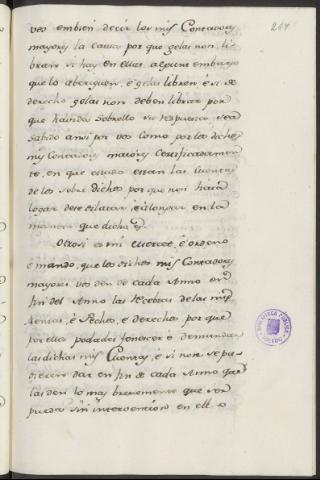 264
vos embien decir los mis Contadores
mayores la causa por que gelas non li-
bran si hay en ellas algun embargo
que lo aberiguen, é gelas libren, é si de
derecho gelas non deben librar por
que havida sobrello su respuesta sea
sabido ansi por vos como por los dichos
mis Contadores maiores certificadamen-
te, en que estado estan las Cuentas
de los sobre dichos por que non haia
logar de se dilatar, é alongar en la
manera que dicha es.
Otrosi es mi merced, é ordeno
é mando, que los dichos mis Contadores
mayores vos den de cada Anno en
fin del Anno las recebtas de las mis
rentas, é Pechos, é derechos por que
por ellas podades fenescer é demandar
las dichas mis Cuentas, é si non se pu-
dieren dar en fin de cada Anno que
las den lo mas brevemente que ser
pueda sin intervencion en ell o
BIBLIOTECA PUBLICA
TOLEDO